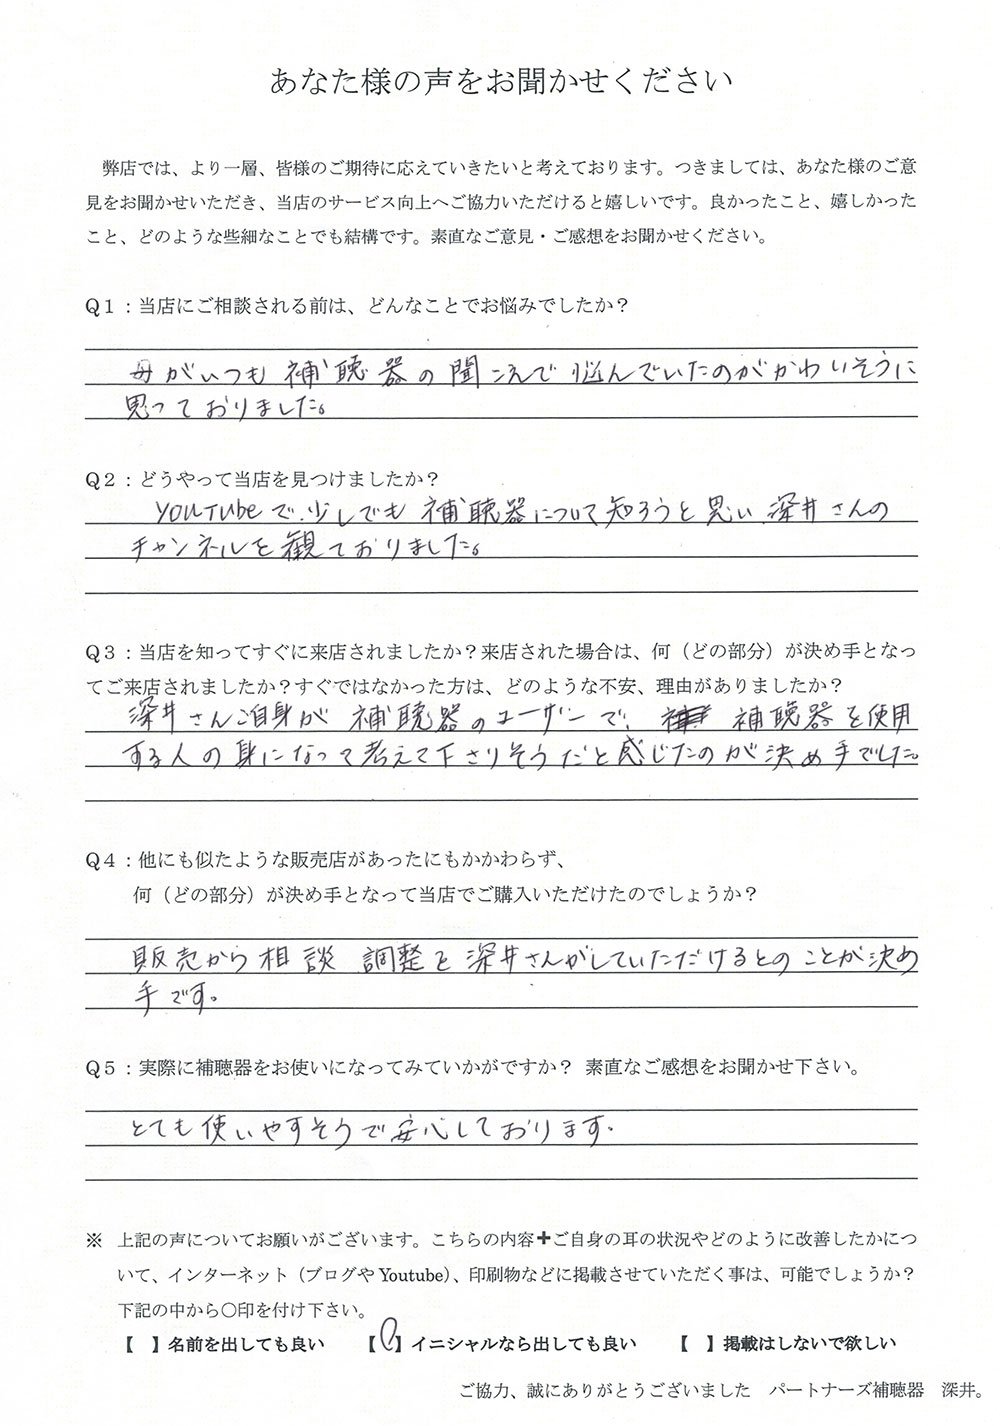 あなた様の声をお聞かせください
弊店では、より一層、皆様のご期待に応えていきたいと考えております。つきましては、あなた様のご意
見をお聞かせいただき、当店のサービス向上へご協力いただけると嬉しいです。良かったこと、嬉しかった
こと、どのような些細なことでも結構です。素直なご意見・ご感想をお聞かせください。
Q１：当店にご相談される前は、どんなことでお悩みでしたか？
母がいつも補聴器の聞こえで悩んでいたのがかわいそうに
思っておりました。
Q２：どうやって当店を見つけましたか？
YOUTubeで、少しでも補聴器について知ろうと思い、深井さんの
チャンネルを観ておりました。
Q３：当店を知ってすぐに来店されましたか？来店された場合は、何（どの部分）が決め手となっ
てご来店されましたか？すぐではなかった方は、どのような不安、理由がありましたか？
深井さんご自身が補聴器のユーザーで、補聴器を使用
する人の身になって考えて下さりそうだと感じたのが決め手でした。
Q４：他にも似たような販売店があったにもかかわらず、
何（どの部分）が決め手となって当店でご購入いただけたのでしょうか？
販売から相談 調整を深井さんがしていただけるとのことが決め
手です。
Q５：実際に補聴器をお使いになってみていかがですか？ 素直なご感想をお聞かせ下さい。
とても使いやすそうで安心しております。
※ 上記の声についてお願いがございます。こちらの内容＋ご自身の耳の状況やどのように改善したかにつ
いて、インターネット（ブログやYoutube）、印刷物などに掲載させていただく事は、可能でしょうか？
下記の中から〇印を付け下さい。
【 】名前を出しても良い 【〇】イニシャルなら出しても良い 【 】掲載はしないで欲しい
ご協力、誠にありがとうございました パートナーズ補聴器 深井。